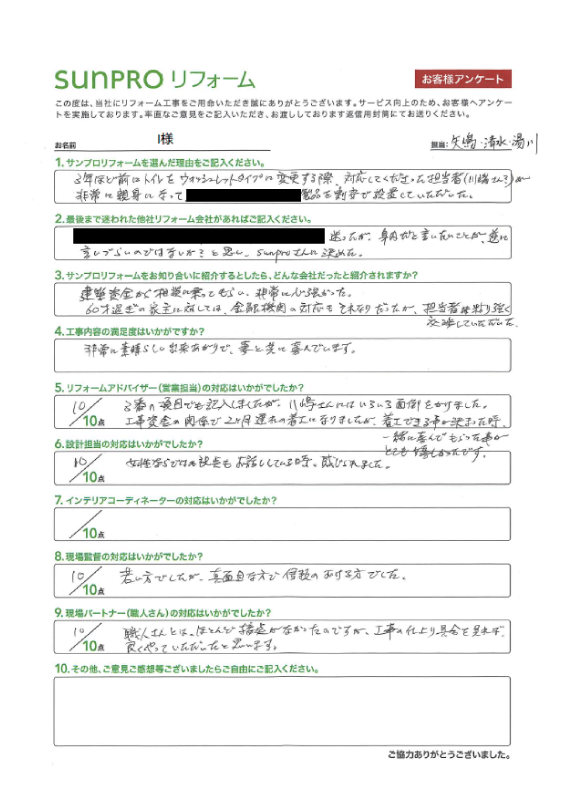 sunPRO リフォーム
お客様アンケート
この度は、当社にリフォーム工事をご用命いただき誠にありがとうございます。サービス向上のため、お客様へアンケー
トを実施しております。率直なご意見をご記入いただき、お渡ししております返信用封筒にてお送りください。
お名前 I様 担当: 矢嶋・清水・湯川
1.サンプロリフォームを選んだ理由をご記入ください。
3年ほど前にトイレをウォッシュレットタイプに変更する際、対応してくださった担当者(川嶋さん?)が
非常に親身になって 製品を割安で設置していただいた。
2.最後まで迷われた他社リフォーム会社があればご記入ください。
迷ったが、身内だと言いたいことが、逆に
言いづらいのではないか?と思い、sunproさんに決めた。
3.サンプロリフォームをお知り合いに紹介するとしたら、どんな会社だったと紹介されますか?
建築資金から相談に乗ってもらい、非常に心強かった。
60才過ぎの家主に対しては、金融機関の対応もそれなりだったが、担当者は粘り強く
交渉していただいた。
4.工事内容の満足度はいかがですか?
非常に素晴らしい出来あがりで、妻と共に喜んでいます。
5.リフォームアドバイザー(営業担当)の対応はいかがでしたか?
10/10点 3番の項目でも記入しましたが、川嶋さんにはいろいろ面倒をかけました。
工事資金の関係で2ヶ月遅れの着工になりましたが、着工できる事が決まった時、
一緒に喜んでもらった事が
とても嬉しかったです。
6.設計担当の対応はいかがでしたか?
10/10点 女性ならではの視点もお話ししている時、感じられました。
7.インテリアコーディネーターの対応はいかがでしたか?
/10点
8.現場監督の対応はいかがでしたか?
10/10点 若い方でしたが、真面目な方で信頼のおける方でした。
9.現場パートナー(職人さん)の対応はいかがでしたか?
10/10点 職人さんとは、ほとんど接点がなかったのですが、工事の仕上り具合を見れば、
良くやっていただいたと思います。
10.その他、ご意見ご感想等ございましたらご自由にご記入ください。
ご協力ありがとうございました。